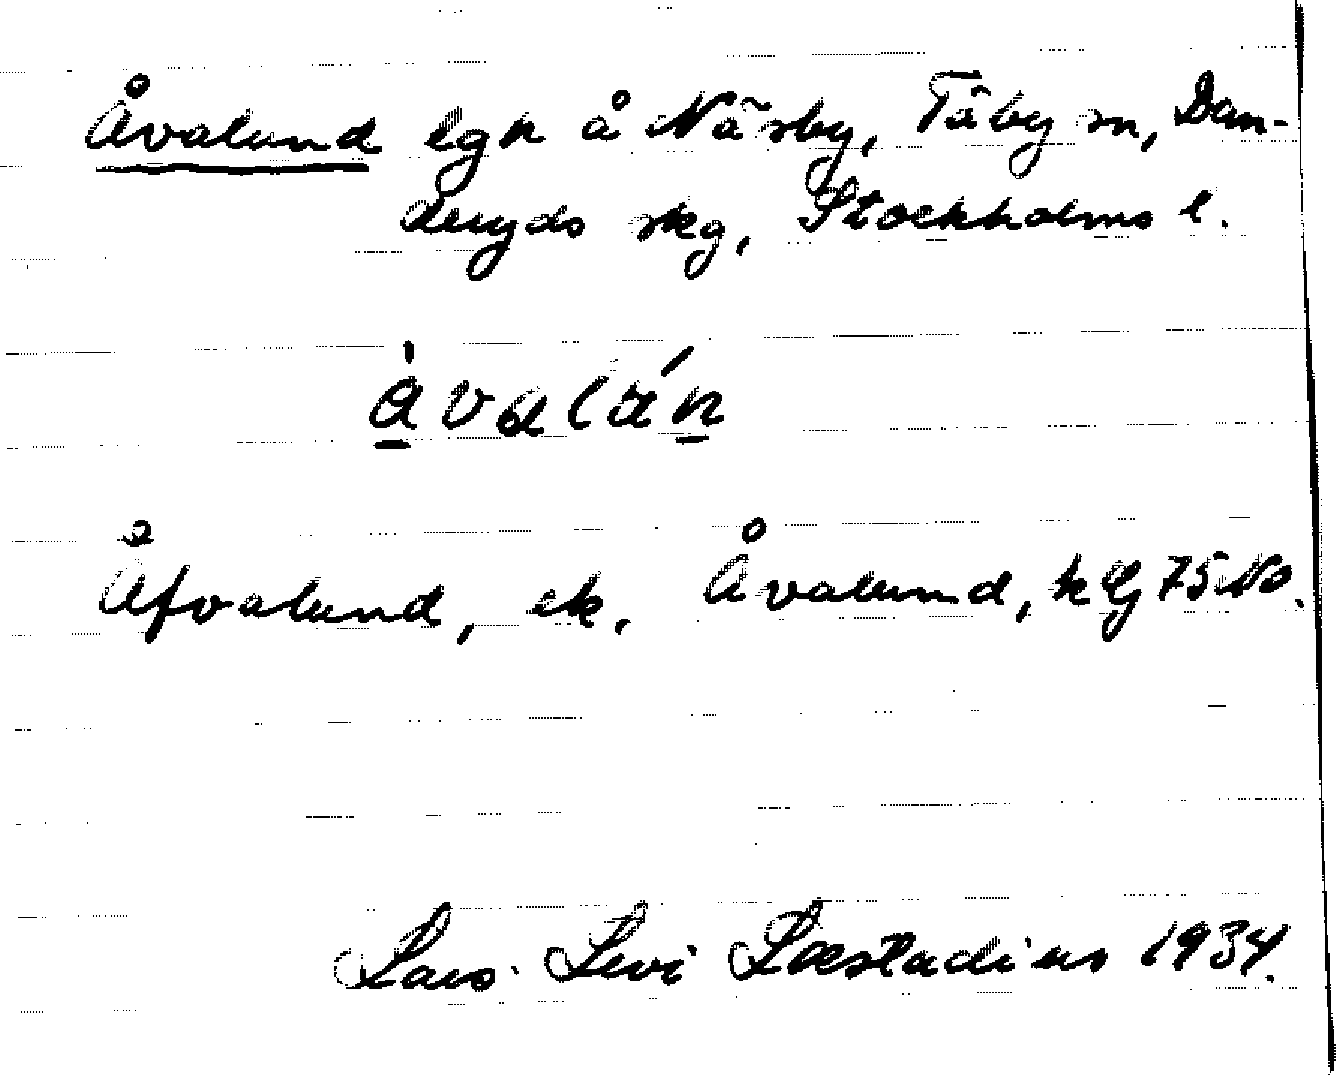 Åvalund lgh å Näsby, Täby sn, Dan-
deryds skg, Stockholms l.
åvalán
Åfvalund, ek. Åvalund, k Bl 75 NO.
Lars Levi Læstadius 1934.